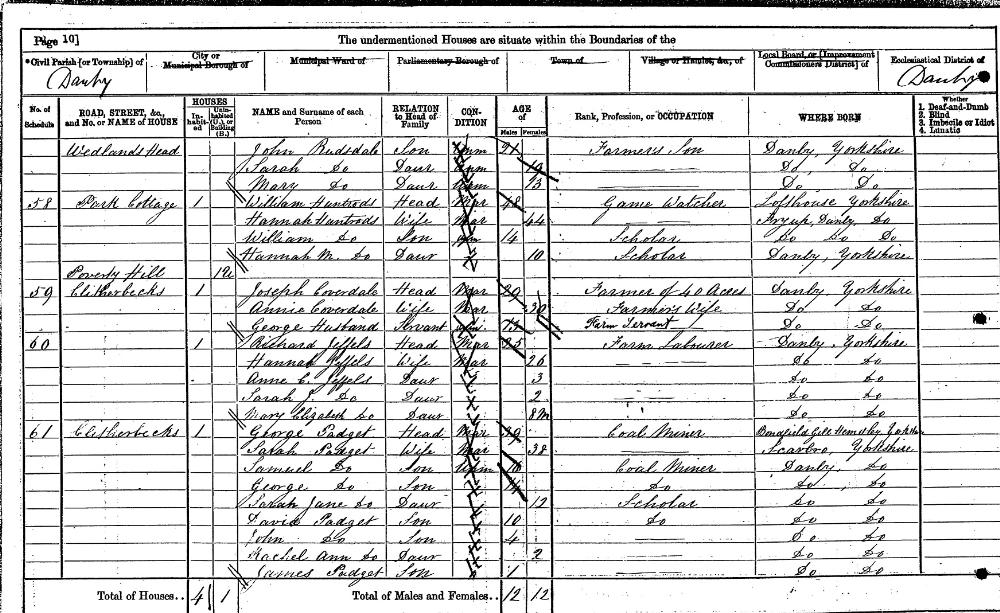 Page 10]
The undermentioned Houses are situate within the Boundaries of the
*Civil Parish [or Township] of Danby
City or Municipal Borough of
Municipal Ward of
Parliamentary Borough of
Town of
Village or Hamlet, &c., of
Local Board, or [Improvement Commissioners District] of
Ecclesiastical District of Danby
No. of Schedule ROAD, STREET, &c., and No. or NAME of HOUSE HOUSES Inhabited Uninhabited (U.), or Building (B.) NAME and Surname of each Person RELATION to Head of Family CONDITION AGE of Males Females Rank, Profession, or OCCUPATION WHERE BORN Whether 1. Deaf-and-Dumb 2. Blind 3. Imbecile or Idiot 4. Lunatic
Wedlands Head John Rudsdale Son Unm 21 Farmer's Son Danby, Yorkshire
Sarah Do Daur Unm 19 Do Do
Mary Do Daur Unm 13 Do Do
58 Park Cottage 1 William Huntrods Head Mar 48 Game Watcher Lofthouse Yorkshire
Hannah Huntrods Wife Mar 44 Fryup, Danby, Do
William Do Son 14 Scholar Do Do Do
Hannah M. Do Daur 10 Scholar Danby, Yorkshire
Poverty Hill 1U
59 Clitherbecks 1 Joseph Coverdale Head Mar 29 Farmer of 40 Acres Danby, Yorkshire
Annie Coverdale Wife Mar 30 Farmer's Wife Do Do
George Husband Servant Farm Servant Do Do
60 1 Richard Jeffels Head Mar 25 Farm Labourer Danby, Yorkshire
Hannah Jeffels Wife Mar 26 Do Do
Anne E. Jeffels Daur 3 Do Do
Sarah J. Do Daur 2 Do Do
Mary Elizabeth Do Daur 8m Do Do
61 Clitherbecks 1 George Padget Head Mar 39 Coal Miner
Sarah Padget Wife Mar 38 Scarbro, Yorkshire
Samuel Do Son Unm 16 Coal Miner Danby, Do
George Do Son 14 Do Do Do
Sarah Jane Do Daur 12 Scholar Do Do
David Padget Son 10 Do Do Do
John Do Son 4 Do Do
Rachel Ann Do Daur 2 Do Do
James Padget Son 1 Do Do
Total of Houses.. 4 1 Total of Males and Females.. 12 12